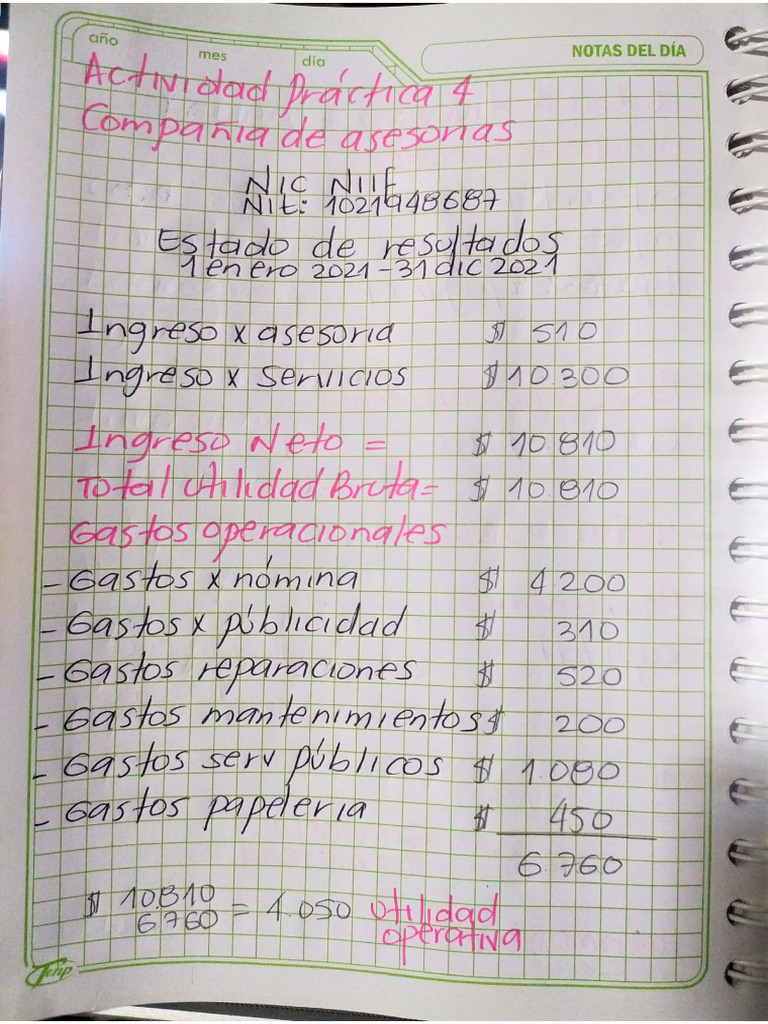 año
mes
día
NOTAS DEL DÍA
Actividad Práctica 4
Compañia de asesorias
NIC NIIF
Nit: 1021948687
Estado de resultados
1 enero 2021 - 31 dic 2021
Ingreso x asesoria $ 510
Ingreso x Servicios $ 10.300
Ingreso Neto = $ 10.810
Total Utilidad Bruta = $ 10.810
Gastos operacionales
- Gastos x nómina $ 4200
- Gastos x públicidad $ 310
- Gastos reparaciones $ 520
- Gastos mantenimientos $ 200
- Gastos serv públicos $ 1.080
- Gastos papeleria $ 450
6.760
$ 10.810
6760 = 4.050 Utilidad
operativa